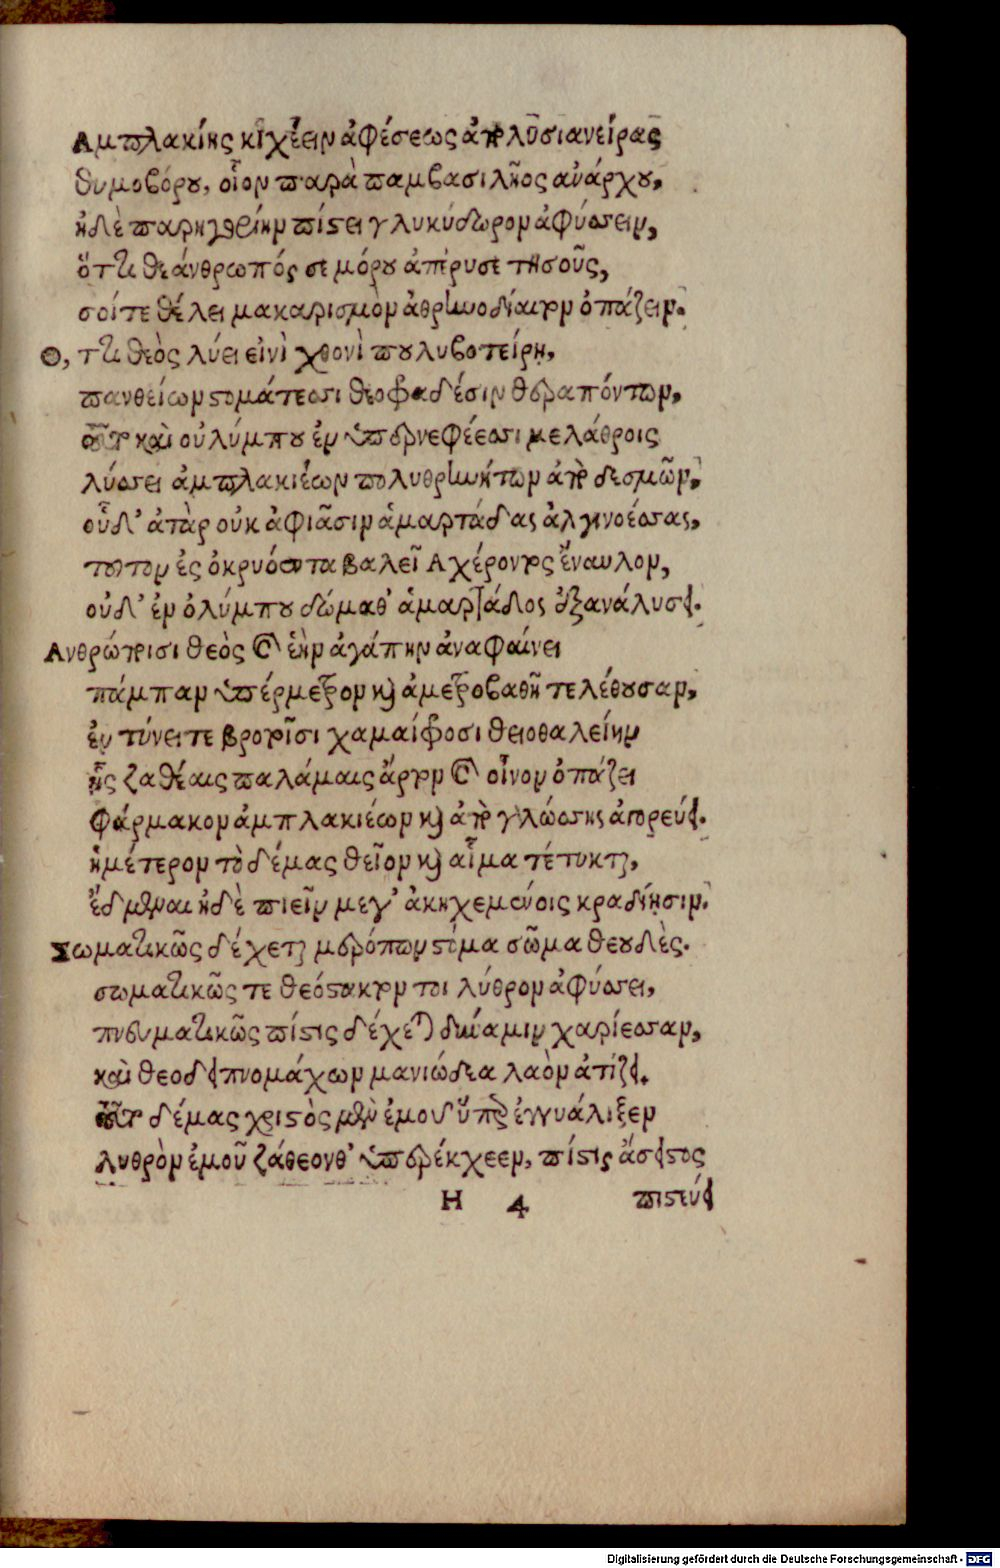 Αμπλακίης κιχέειν ἀφέσεως ἀπὸ λυσιανείρας
θυμοβόρου, οἷον παρὰ παμβασιλῆος ἀνάρχου,
ἠδὲ παρηγορίην πίστει γλυκύδωρον ἀφύσσειν,
ὅττι θεάνθρωπός σε μόρου ἀπέρυσε Ιησοῦς,
σοίτε θέλει μακαρισμὸν ἀθρήνοδίαιτον ὀπάζειν.
Ο, ττι θεὸς λύει εἰνὶ χθονὶ πουλυβοτείρῃ,
πανθείων στομάτεσσι θεοφραδέσιν θεραπόντων,
τοῦτο καὶ οὐλύμπου ἐν ὑπερνεφέεσσι μελάθροις
λύσσει ἀμπλακιέων πολυθρήνητων ἀπὸ δεσμῶν,
οὓς δ' ἀτὰρ οὐκ ἀφιᾶσιν ἁμαρτάδας ἀλγινοέσσας,
τοῦτον ἐς ὀκρυόεντα βαλεῖ Αχέροντος ἔναυλον,
οὐδ' ἐν ὀλύμπου δώμαθ' ἁμαρτάδος ἐξανάλυσει.
Ανθρώποισι θεὸς καὶ ἑὴν ἀγάπην ἀναφαίνει
πάμπαν ὑπέρμετρον καὶ ἀμετροβαθῆ τελέθουσαν,
ἐν τύνειτε βροτοῖσι χαμαίφοσι θειοθαλείην
ῆς ζαθέαις παλάμαις ἄρτον καὶ οἶνον ὀπάζει
φάρμακον ἀμπλακιέων καὶ ἀπὸ γλώσσης ἀγορεύει.
ἡμέτερον τὸ δέμας θεῖον καὶ αἷμα τέτυκται,
ἔδμεναι ἠδὲ πιεῖν μεγ' ἀκηχεμένοις κραδίῃσιν.
Σωματικῶς δέχεται μερόπων στόμα σῶμα θεουδὲς.
σωματικῶς τε θεόστακτον τοι λύθρον ἀφύσσει,
πνευματικῶς πίστις δέχεται δύναμιν χαρίεσσαν,
καὶ θεοδειπνομάχων μανιώδεα λαὸν ἀτίζει.
τοῦτο δέμας χριστὸς μὲν ἐμοῦ ὕπερ ἐγγυάλιξεν
λυθρὸν ἐμοῦ ζάθεονθ' ὑπερέκχεεν, πίστις ἄσειστος
Η 4 πιστεύει
Digitalisierung gefördert durch die Deutsche Forschungsgemeinschaft - DFG